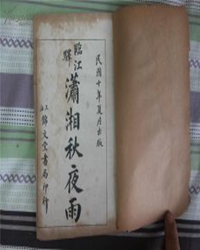 民國十年夏月出版
臨江驛
瀟湘秋夜雨
上江錦文堂書局印行